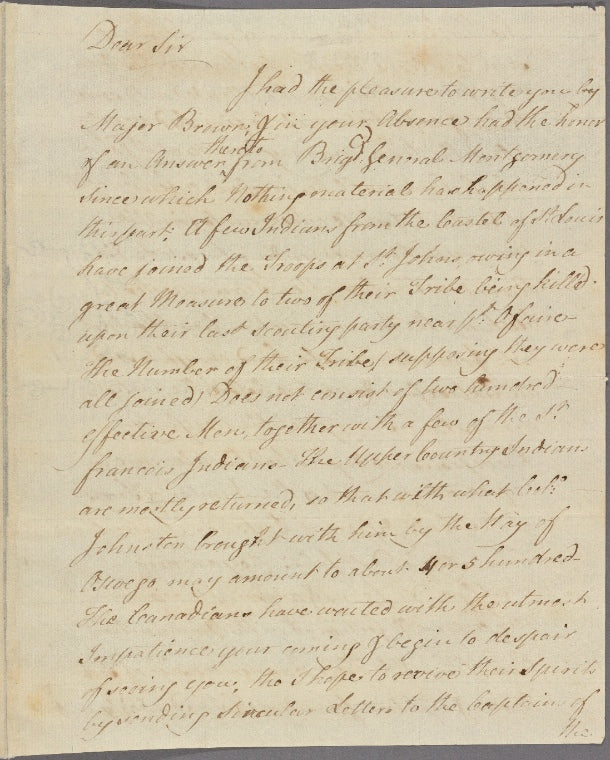 Dear Sir
I had the pleasure to write you by
Major Brown, & in your Absence had the honor
thereto
of an Answer from Brigd. General Montgomery
since which Nothing material has happened in
this part; A few Indians from the Castel of St. Louis
have joined the Troops at St. Johns, owing in a
great Measure to two of their Tribe being killd.
upon their last scouting party near pt. Ofaire
the Number of their Tribe (supposing they were
all joined) Does not consist of two hundred
effective Men, together with a few of the St.
francois Indians - The Upper Country Indians
are mostly returned, so that with what Colo.
Johnston brought with him by the Way of
Oswego may amount to about 4 or 5 hundred -
The Canadians have waited with the utmost
Impatience your coming & begin to despair
of seeing you, tho I hope to revive their Spirits
by sending Circular Letters to the Captains of
the